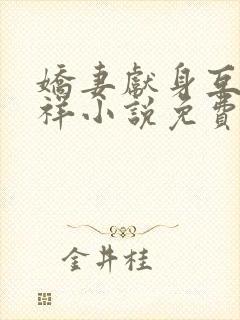 嬌妻獻身互
祥小說免費
金井桂